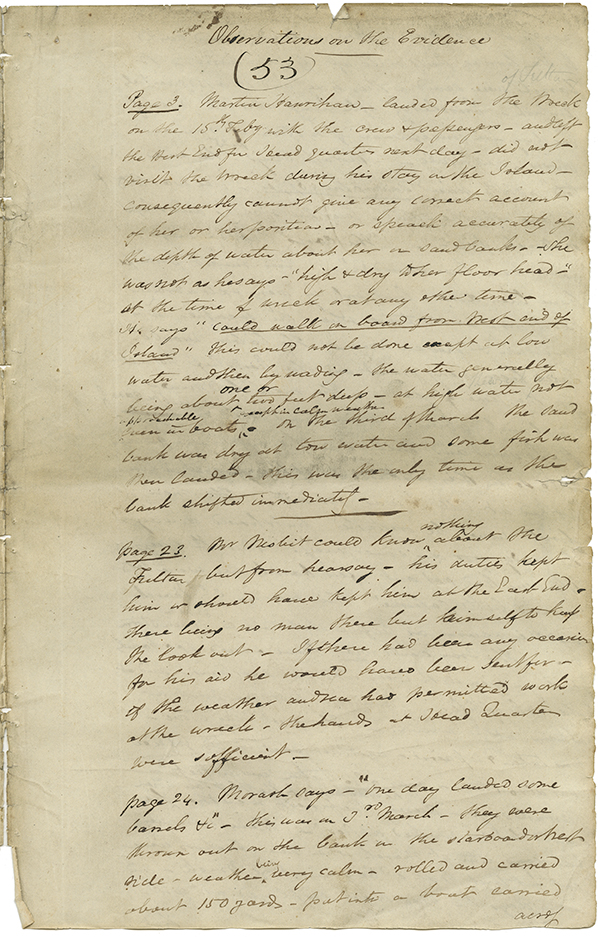 Observations on the Evidence
53
Page 3. Martin Hanrihan – landed from the Wreck
on the 15th Feby with the crew & passengers – and left
the West End for Head quarters next day – did not
visit the wreck during his stay on the Island –
consequently cannot give any correct account
of her or her position – or speak accurately of
the depth of water about her or sand banks – She
was not as he says – "high & dry to her floor head –"
at the time of wreck or at any other time –
He says "could walk on board from West end of
Island" this could not be done except at low
water and then by wading – the water generally
one or
being about two feet deep – at high water not
approachable except in calm weather
even in boats – On the third of March the sand
bank was dry at low water and some fish was
then landed – this was the only time as the
bank shifted immediately –
nothing
page 23. Mr Nesbit could know about the
Fulton but from hearsay – his duties kept
him or should have kept him at the East End –
there being no man there but himself to keep
the look out – If there had been any occasion
for his aid he would have been sent for –
if the weather and sea had permitted work
at the wreck – the hands at Head Quarters
were sufficient –
page 24. Morash says – "one day landed some
barrels &c" – this was on 3rd March – they were
thrown out on the bank on the starboard
side – weather being very calm – rolled and carried
about 150 yards – put into a boat carried
across